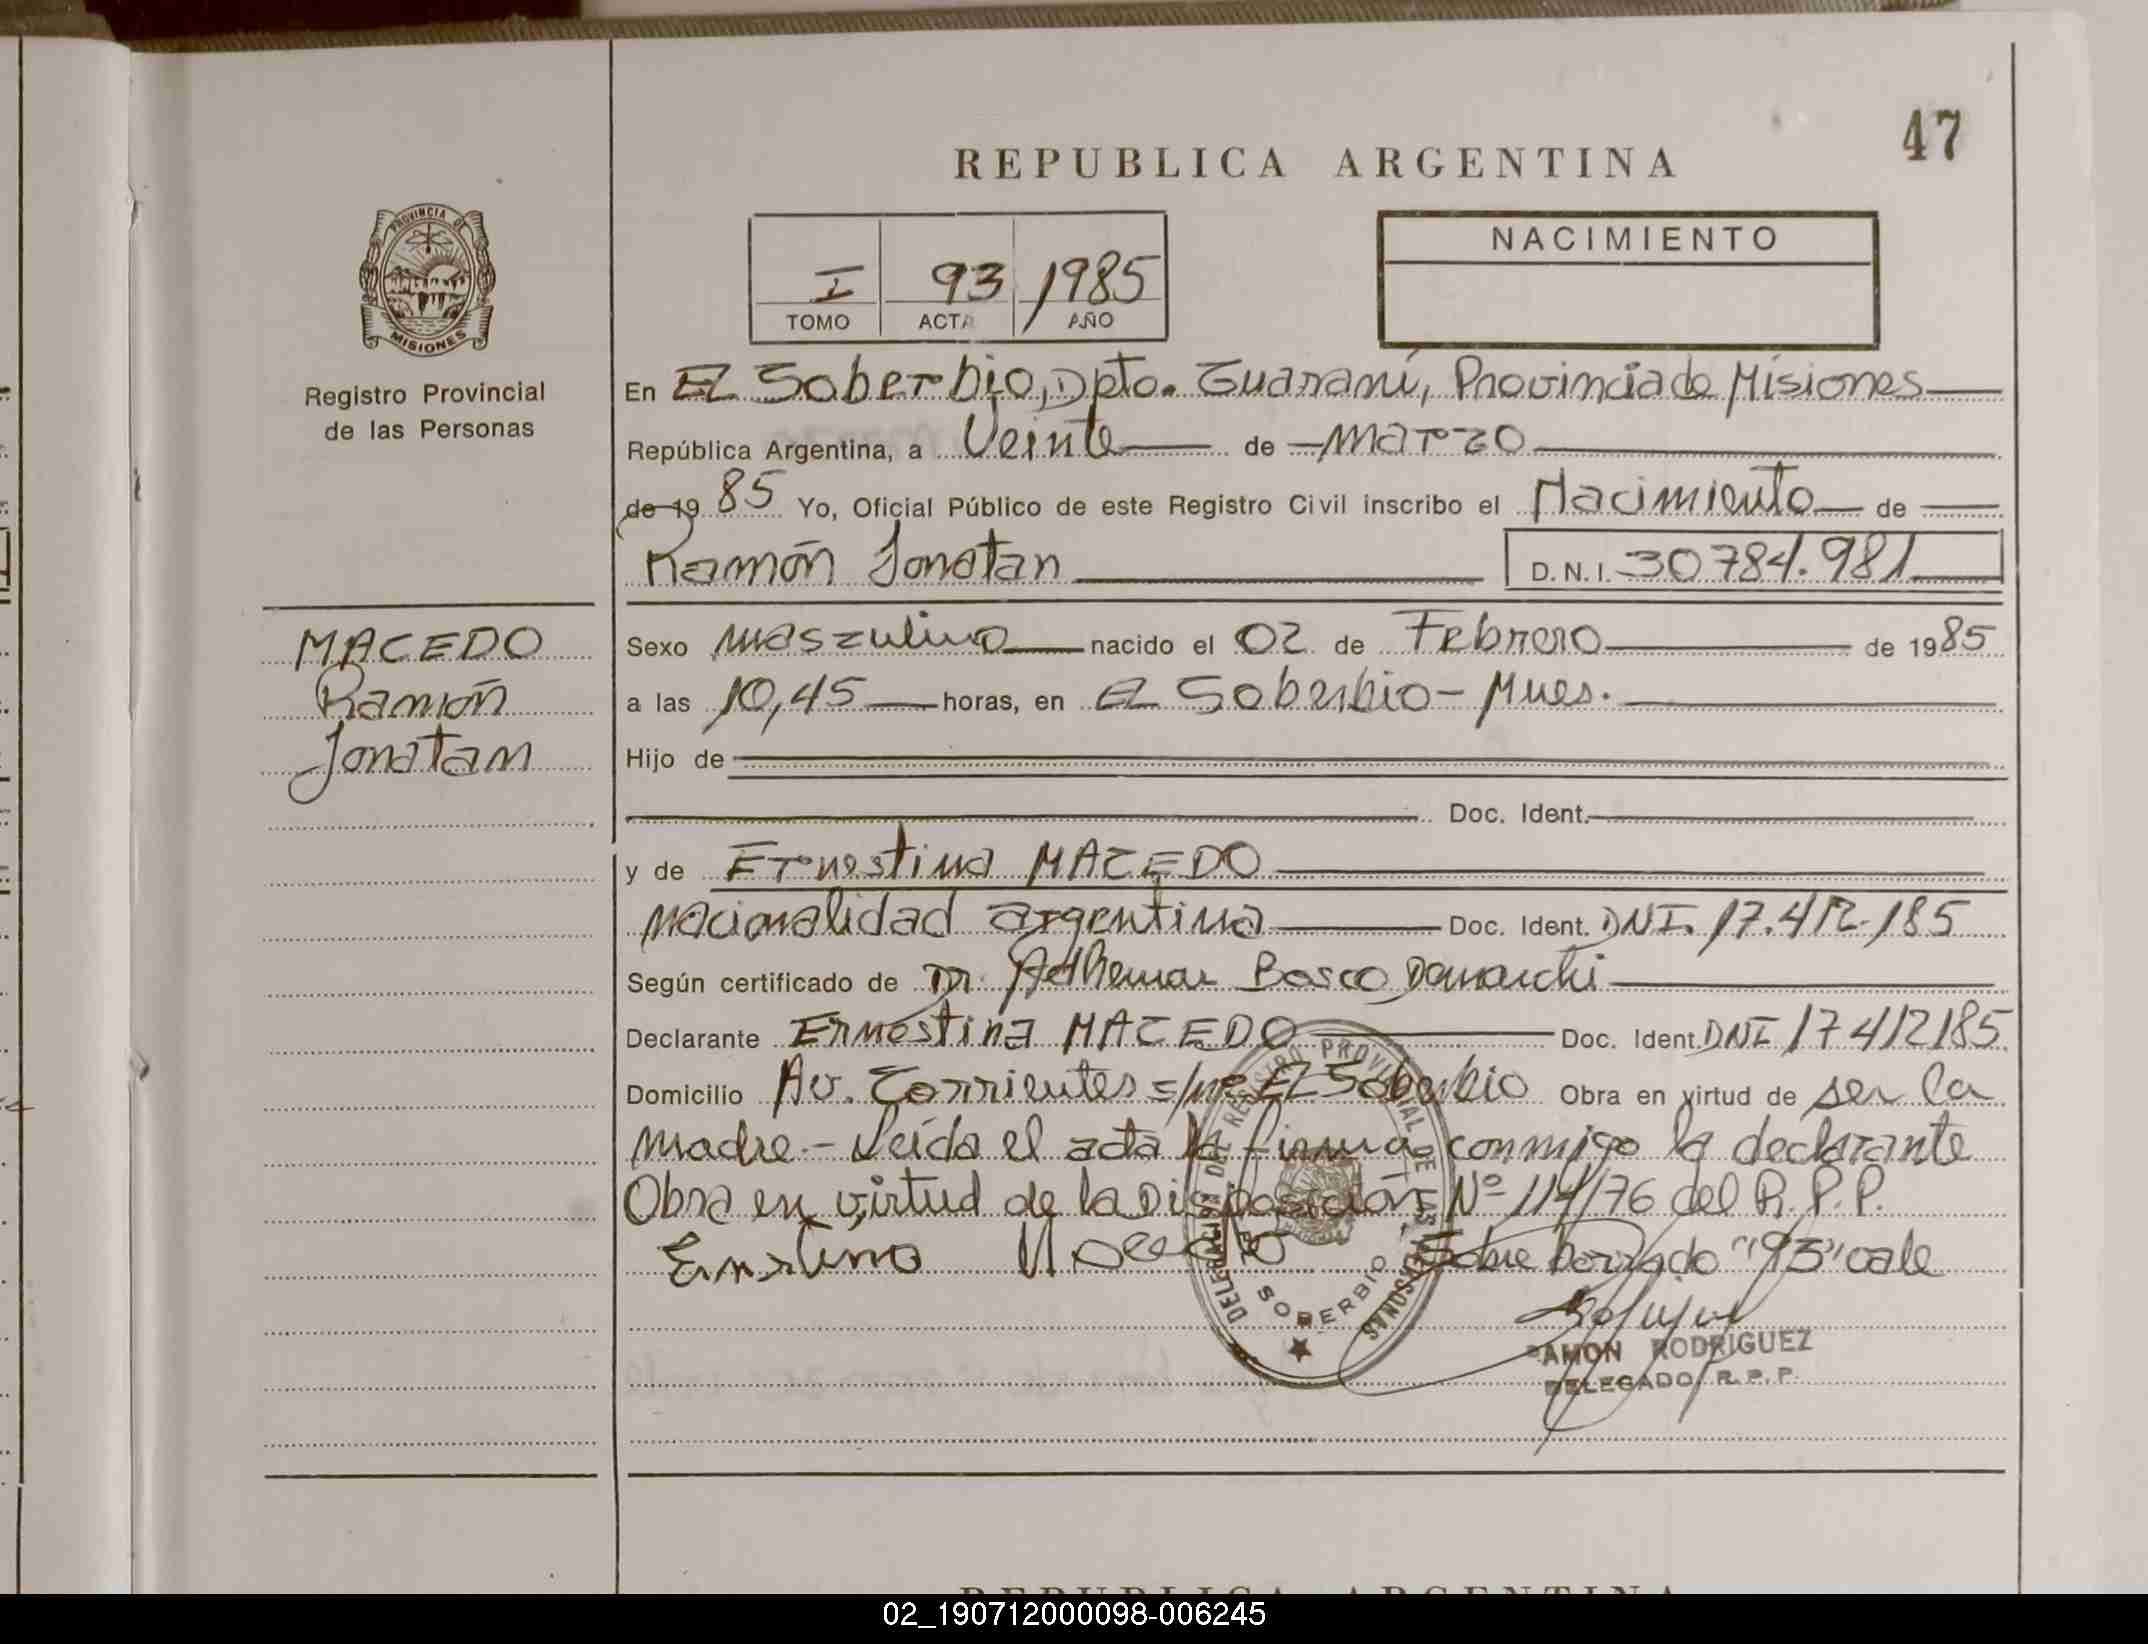 47
REPUBLICA ARGENTINA
PROVINCIA DE
MISIONES
Registro Provincial
de las Personas
I 93 1985
TOMO ACTA AÑO
NACIMIENTO
En El Soberbio, Dpto. Guaraní, Provincia de Misiones
República Argentina, a Veinte de marzo
de 19 85 Yo, Oficial Público de este Registro Civil inscribo el Nacimiento de
Ramón Jonatan D.N.I. 30784.981
MACEDO
Ramón
Jonatam
Sexo masculino nacido el 02 de Febrero de 1985
a las 10,45 horas, en El Soberbio - Mnes.
Hijo de
Doc. Ident.
y de Ernestina MACEDO
nacionalidad argentina Doc. Ident. DNI. 17.412.185
Según certificado de Dr. Adhemar Bosco
Declarante Ernestina MACEDO Doc. Ident. DNI 17412185
Domicilio Av. Corrientes s/nº El Soberbio Obra en virtud de ser la
madre.- Leída el acta la firma conmigo la declarante
Obra en virtud de la Disposición Nº 114/76 del R.P.P.
Sobre borrado "93" vale
DELEGACION DEL REGISTRO PROVINCIAL DE LAS PERSONAS
EL SOBERBIO
RAMON RODRIGUEZ
DELEGADO R.P.P.
REPUBLICA ARGENTINA
02_190712000098-006245